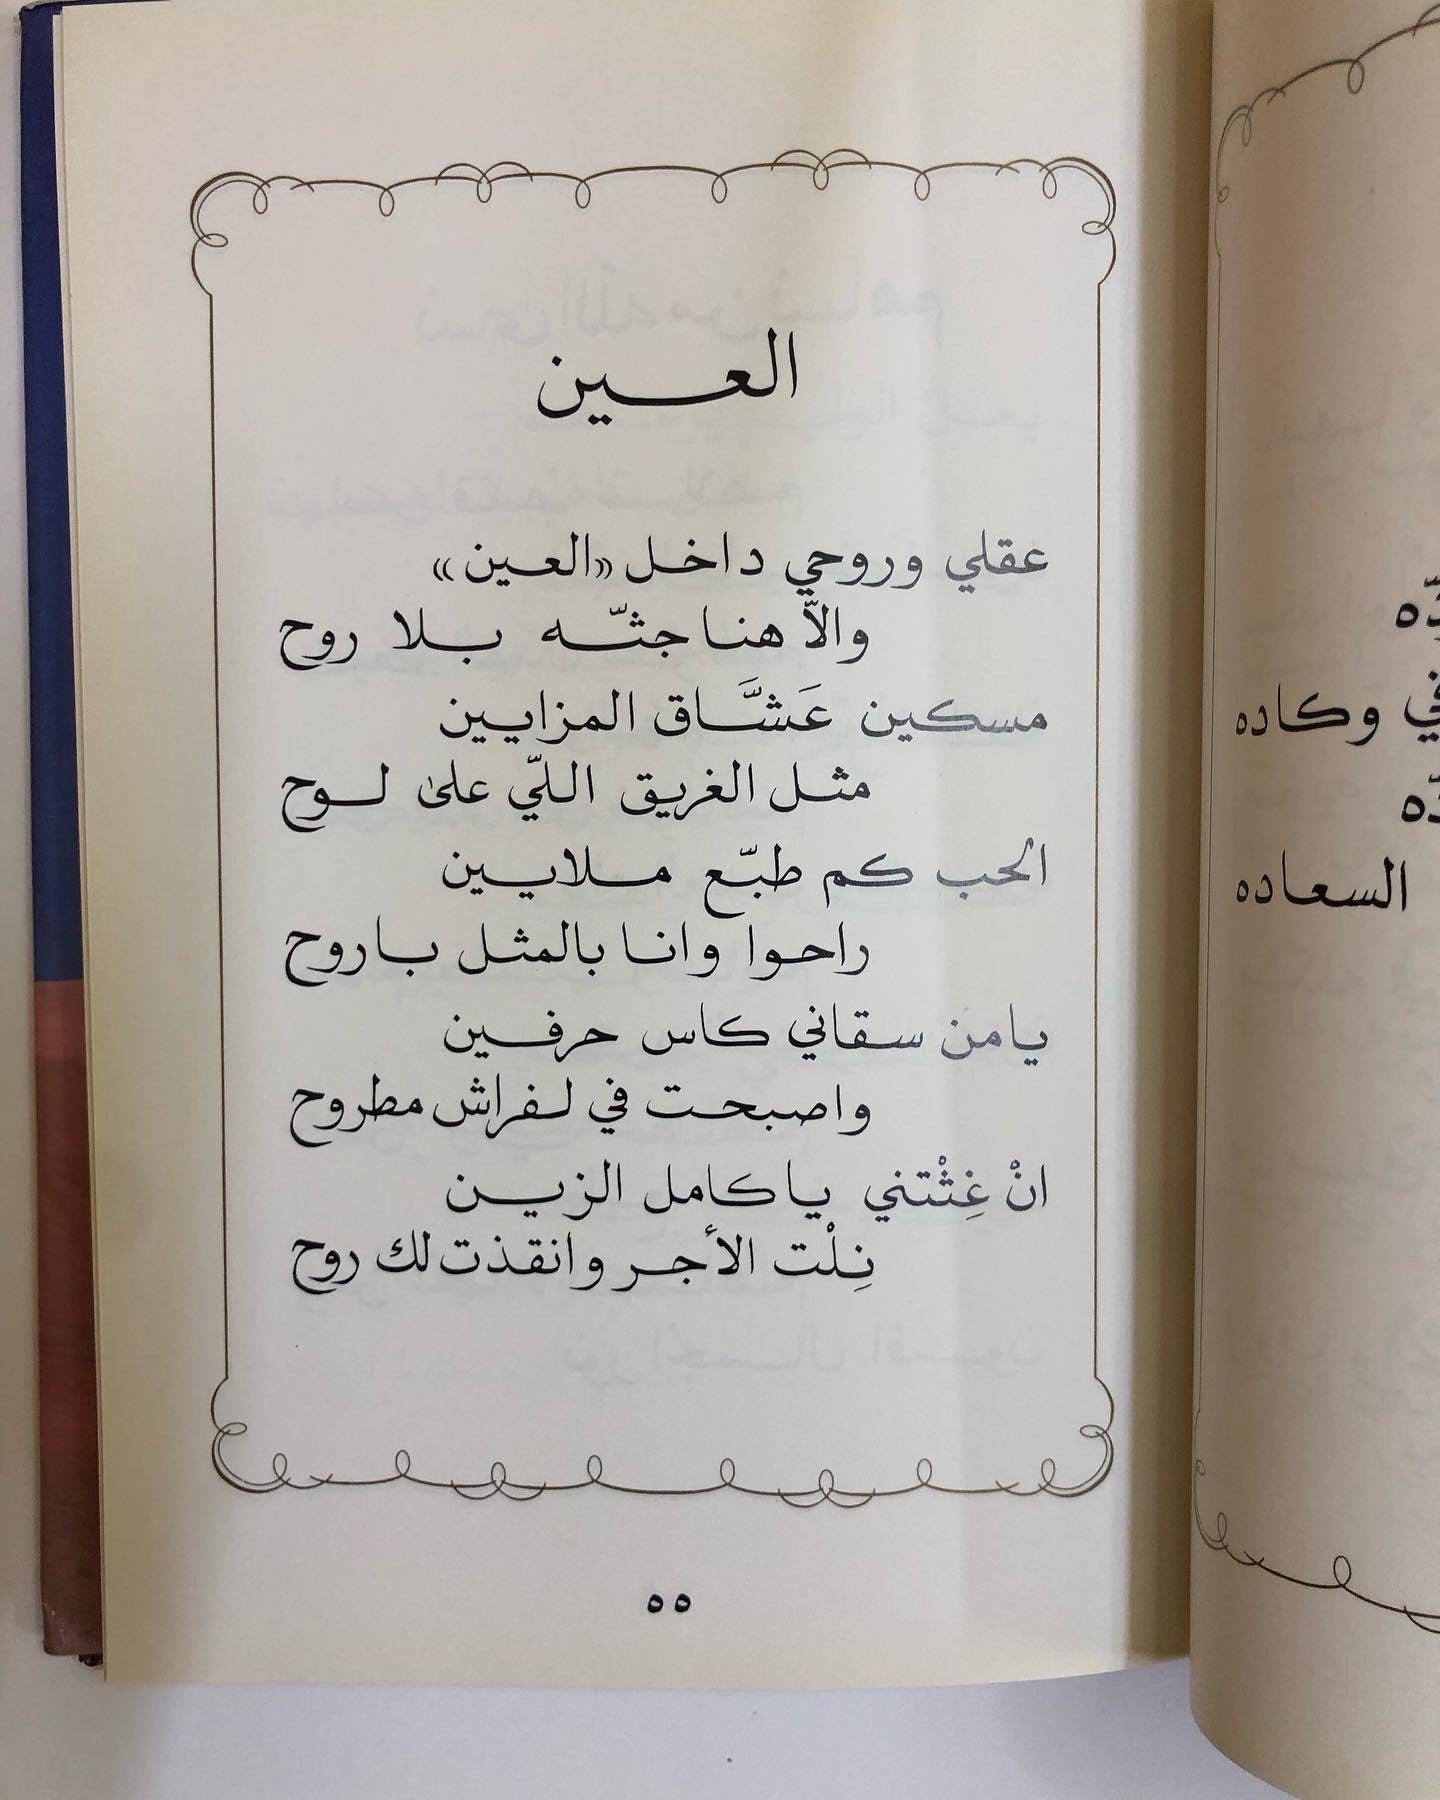 العين
عقلي وروحي داخل «العين»
والاّ هنا جثّه بلا روح
مسكين عَشَّاق المزايين
مثل الغريق اللّي على لوح
الحب كم طبّع ملايين
راحوا وانا بالمثل باروح
يا من سقاني كاس حرفين
واصبحت في لفراش مطروح
انْ غِثْتني يا كامل الزين
نِلْت الأجر وانقذت لك روح
٥٥
في وكاده
السعاده